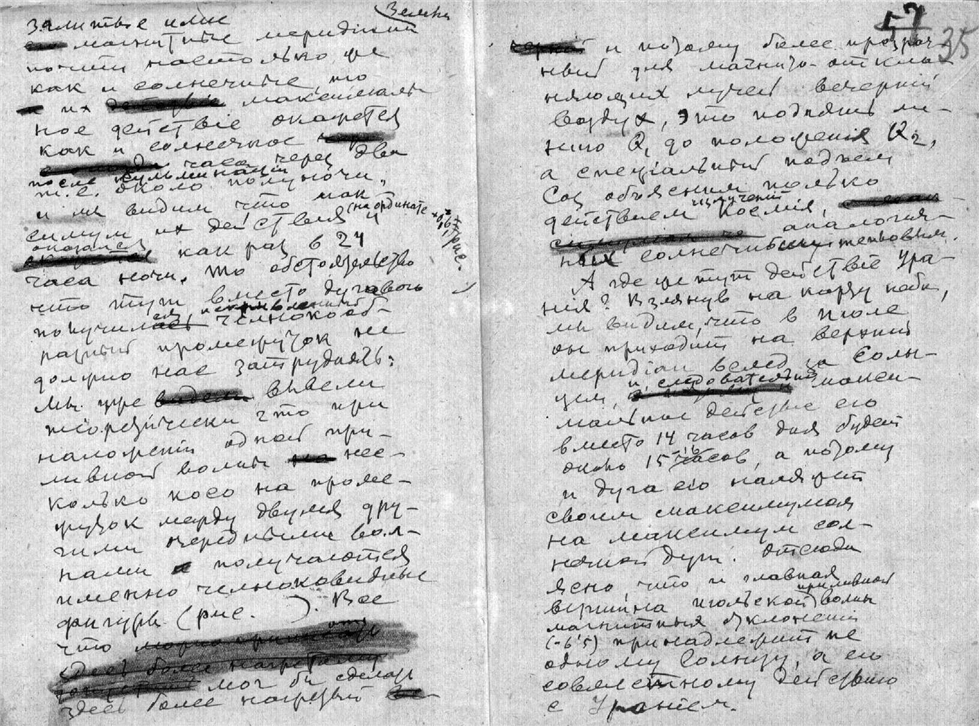 Земныя
магнитные меридианы
почти настолько же
как и солнечные, то
их максималь-
ное действие окажется
как и солнечное
часа через два
после кульминации
т.е. около полуночи.
и мы видим что мак-
симум их действия (на ординате
оказался как раз в 24
часа ночи. То обстоятельство
что тут вместо дугового
получился челнокооб-
разный промежуток не
должно нас затруднять:
мы уже вывели
теоретически что при
наложении одной при-
ливной волны нес-
колько косо на проме-
жуток между двумя дру-
гими передними вол-
нами получаются
именно челноковидные
фигуры (рис. ). Все
что
мог бы сделать
здесь более нагретый
57
35
и потому более прозрач-
ный для магнито-откло-
няющих лучей вечерний
воздух, это поднять ли-
нию Q, до положения Q2,
а специальный подъем
Cαz объясним только
действием излучений Космия,
аналогич-
ных солнечно
А где же тут действие Ура-
ния? Взглянув на карту неба,
мы видим, что в июле
он приходит на верхний
меридиан вслед за Солн-
цем, и, следовательно, макси-
мальное действие его
вместо 14 часов дня будет
около 15-16 часов, а потому
и дуга его наляжет
своим максимумом
на максимум сол-
нечной дуги. Отсюда
ясно, что и главная
вершина июльской приливной волны
магнитных отклонений
(-6'5) принадлежит не
одному Солнцу, а его
совместному действию
с Уранием.